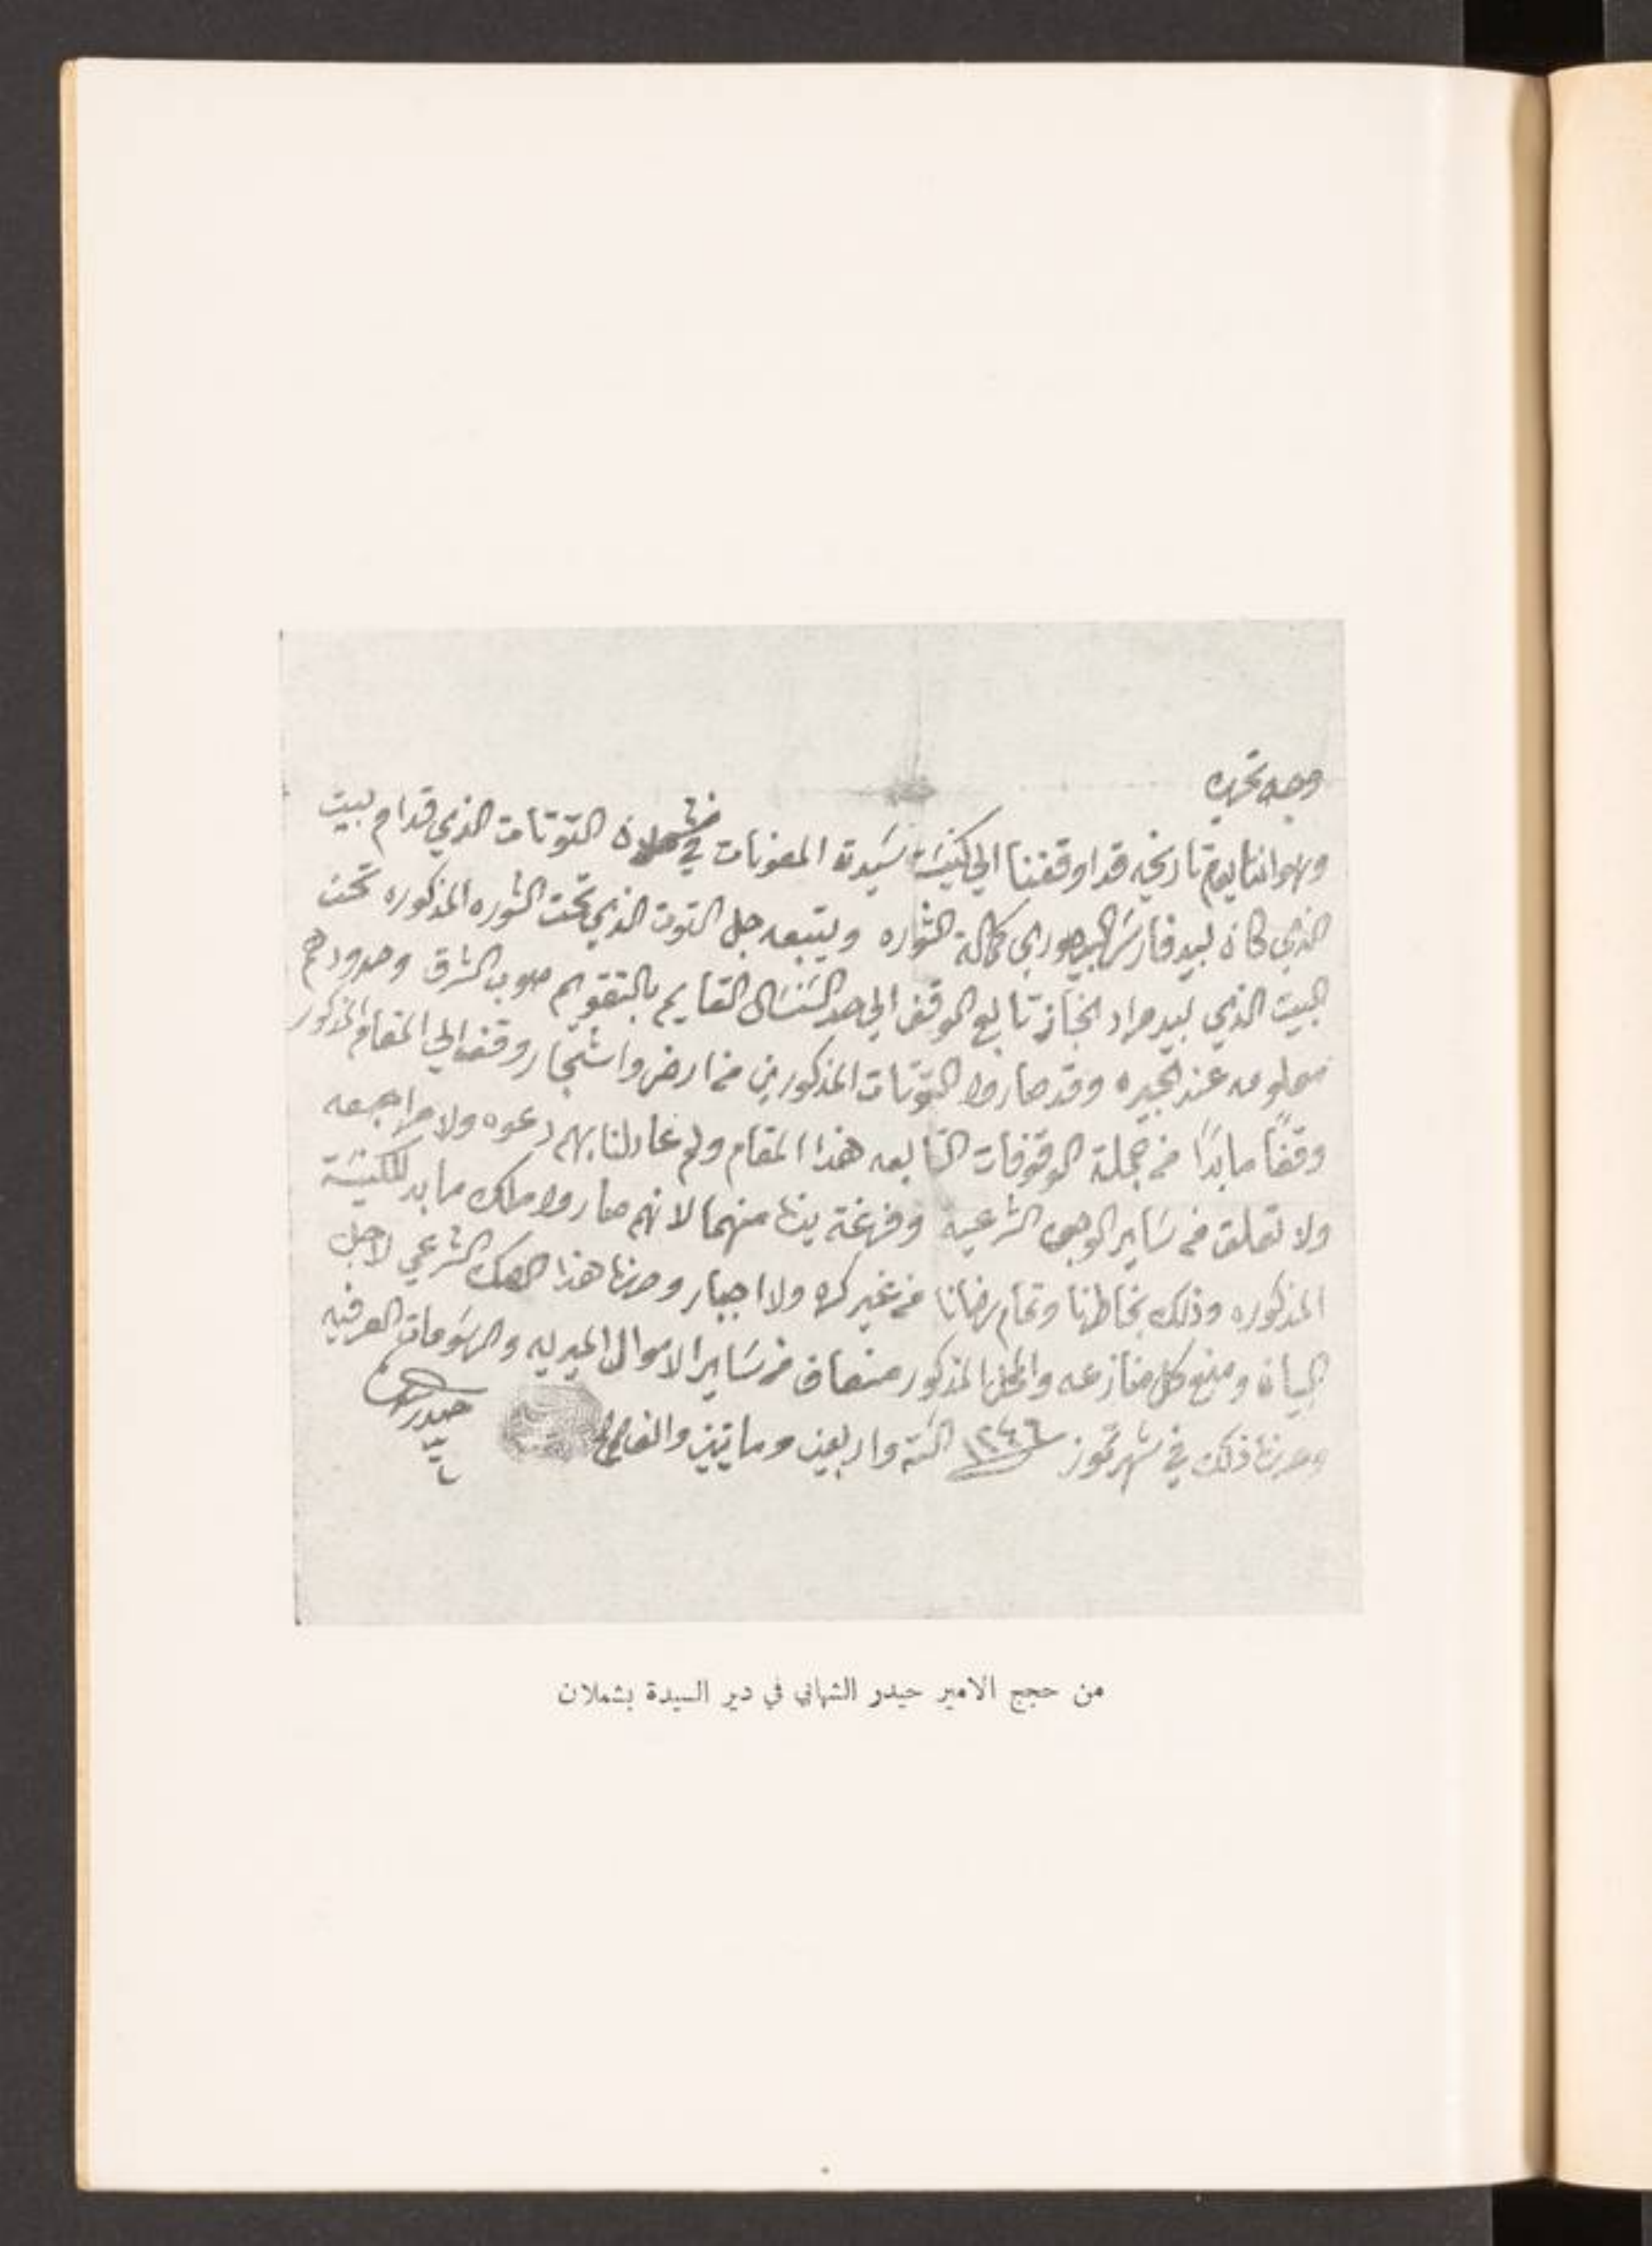 وجه تحريره
وهو اننا يوم تاريخه قد اوقفنا الى كنيسة سيدة المعونات في شملان التوتات الذي قدام بيت
الذي كان بيد فارس كمالة الشواره ويتبعه جل التوت الذي تحت الشوره المذكوره تحت
البيت الذي بيد مراد الخباز تابع الوقف الى حد السنسال القايم بالتقويم صوب الشرق وحدودهم
معلومه عند الجيره وقد صاروا التوتات المذكورين من ارض واشجار وقف الى المقام المذكور
وقفاً مابداً من جملة الوقوفات التابعه هذا المقام ولم عاد لنا بهم دعوه ولا مراجعه
ولا تعلق من ساير الوجوه الشرعيه وفرغة يدنا منهما لانهم صاروا ملك مابد للكنيسة
المذكوره وذلك بخاطرنا وتمام رضانا من غير كره ولا اجبار وحررنا هذا الصك الشرعي لاجل
البيان ومنع كل منازعه والمحل المذكور منصاف من ساير الاموال الميريه والرسومات العرفيه
وحررنا ذلك في شهر تموز ١٢٤٦ ستة واربعين وماتين والف
حيدر
شهاب
من حجج الامير حيدر الشهابي في دير السيدة بشملان